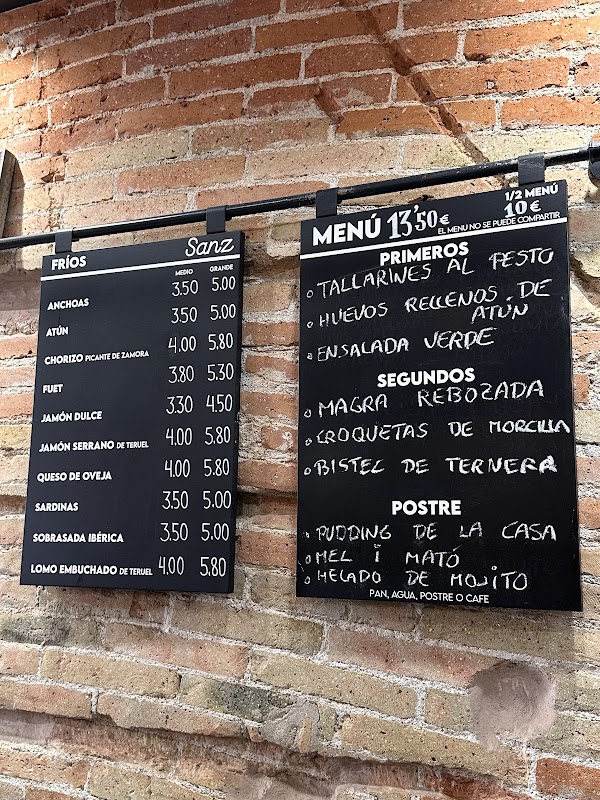 FRÍOS
Sanz
MEDIO GRANDE
ANCHOAS 3.50 5.00
ATÚN 3.50 5.00
CHORIZO PICANTE DE ZAMORA 4.00 5.80
FUET 3.80 5.30
JAMÓN DULCE 3.30 4.50
JAMÓN SERRANO DE TERUEL 4.00 5.80
QUESO DE OVEJA 4.00 5.80
SARDINAS 3.50 5.00
SOBRASADA IBÉRICA 3.50 5.00
LOMO EMBUCHADO DE TERUEL 4.00 5.80
MENÚ 13'50 €
1/2 MENÚ
10 €
EL MENU NO SE PUEDE COMPARTIR
PRIMEROS
TALLARINES AL PESTO
HUEVOS RELLENOS DE
ATÚN
ENSALADA VERDE
SEGUNDOS
MAGRA REBOZADA
CROQUETAS DE MORCILLA
BISTEC DE TERNERA
POSTRE
PUDDING DE LA CASA
MEL I MATÓ
HELADO DE MOJITO
PAN, AGUA, POSTRE O CAFE